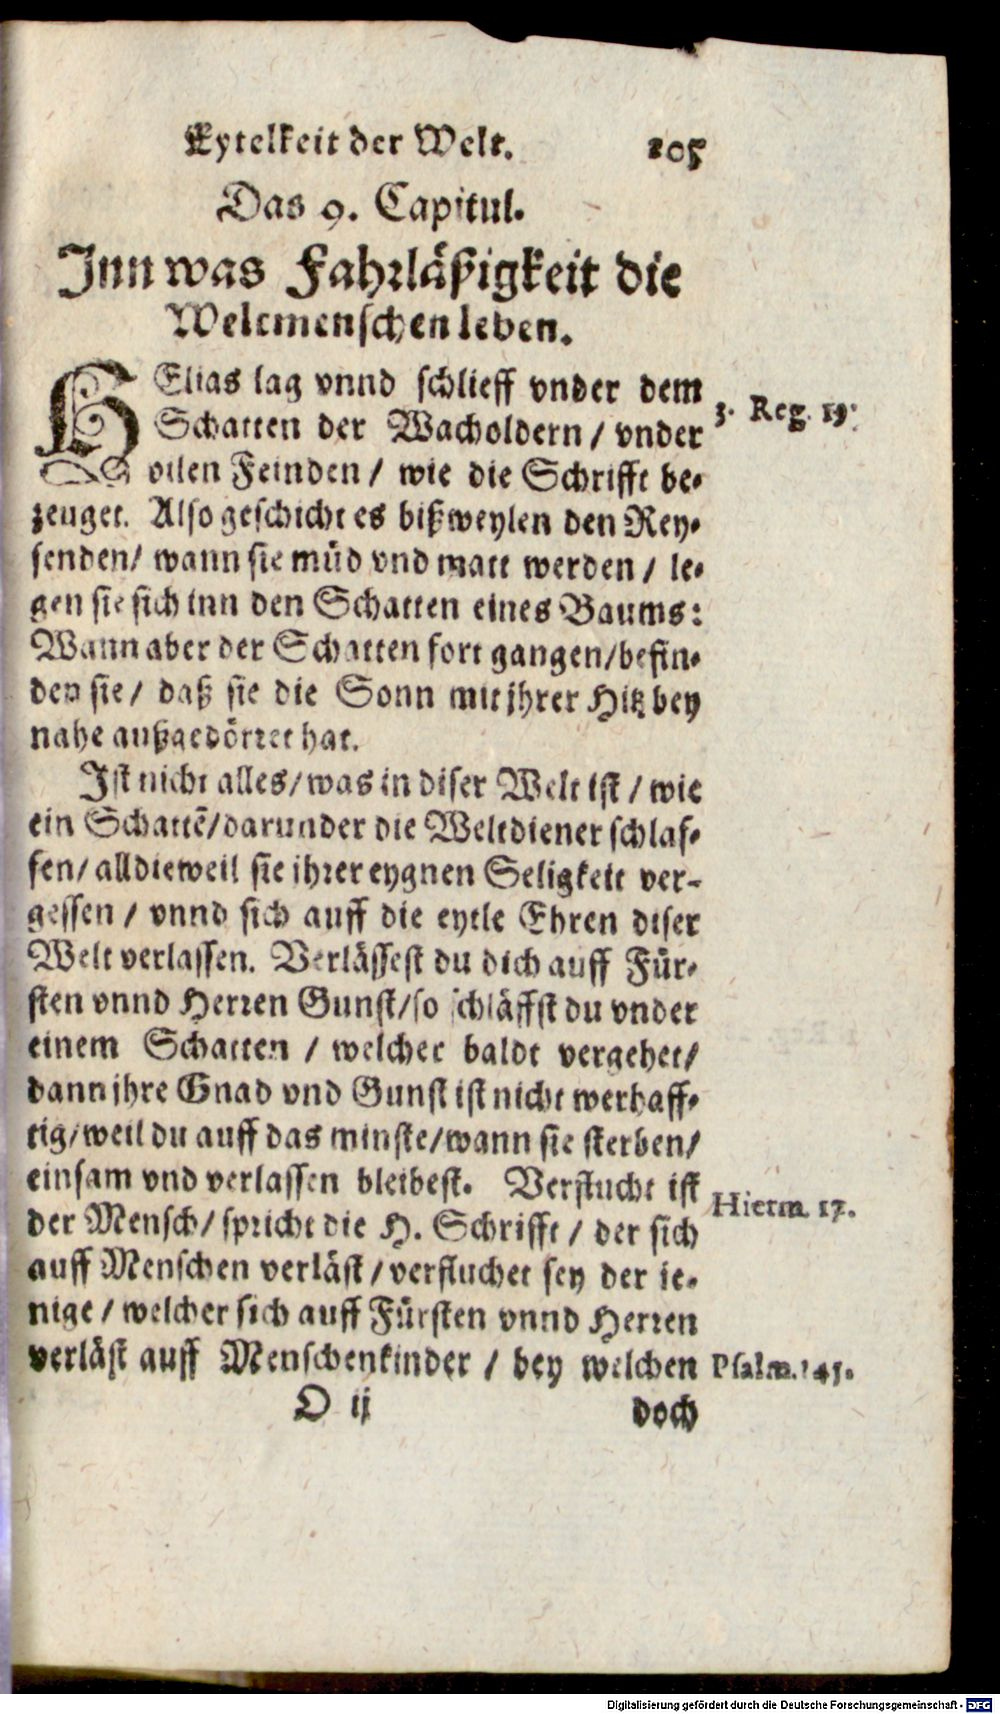 Eytelkeit der Welt. 105
Das 9. Capitul.
Inn was Fahrläßigkeit die
Weltmenschen leben.
HElias lag vnnd schlieff vnder dem
Schatten der Wacholdern / vnder
vilen Feinden / wie die Schrifft be-
3. Reg. 19.
zeuget. Also geschicht es bißweylen den Rey-
senden / wann sie müd vnd matt werden / le-
gen sie sich inn den Schatten eines Baums:
Wann aber der Schatten fort gangen / befin-
den sie / daß sie die Sonn mit jhrer Hitz bey
nahe außgedörret hat.
Ist nicht alles / was in diser Welt ist / wie
ein Schattē / darunder die Weltdiener schlaf-
fen / alldieweil sie jhrer eygnen Seligkeit ver-
gessen / vnnd sich auff die eytle Ehren diser
Welt verlassen. Verlässest du dich auff Für-
sten vnnd Herren Gunst / so schläffst du vnder
einem Schatten / welcher baldt vergehet /
dann jhre Gnad vnd Gunst ist nicht werhaff-
tig / weil du auff das minste / wann sie sterben /
einsam vnd verlassen bleibest. Verflucht ist
der Mensch / spricht die H. Schrifft / der sich
Hierm. 17.
auff Menschen verläst / verfluchet sey der je-
nige / welcher sich auff Fürsten vnnd Herren
verläst auff Menschenkinder / bey welchen
Psalm. 145.
O ij doch
Digitalisierung gefördert durch die Deutsche Forschungsgemeinschaft - DFG